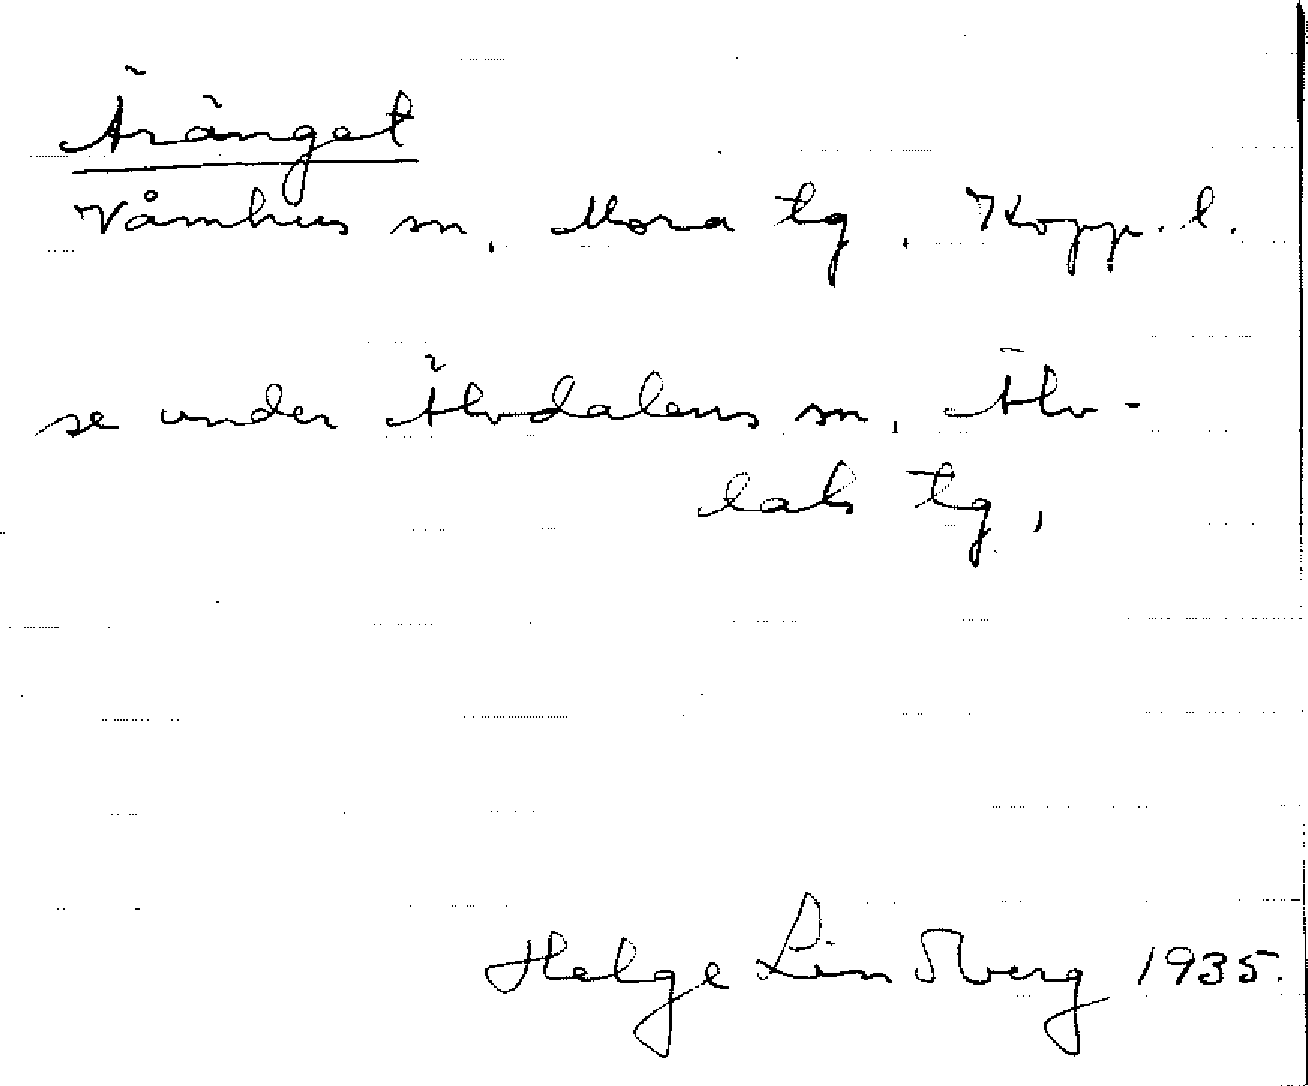 Äränget
Våmhus sn, Mora tg, Kopp. l.
se under Älvdalens sn, Älv-
dals tg,
Helge Lindberg 1935.